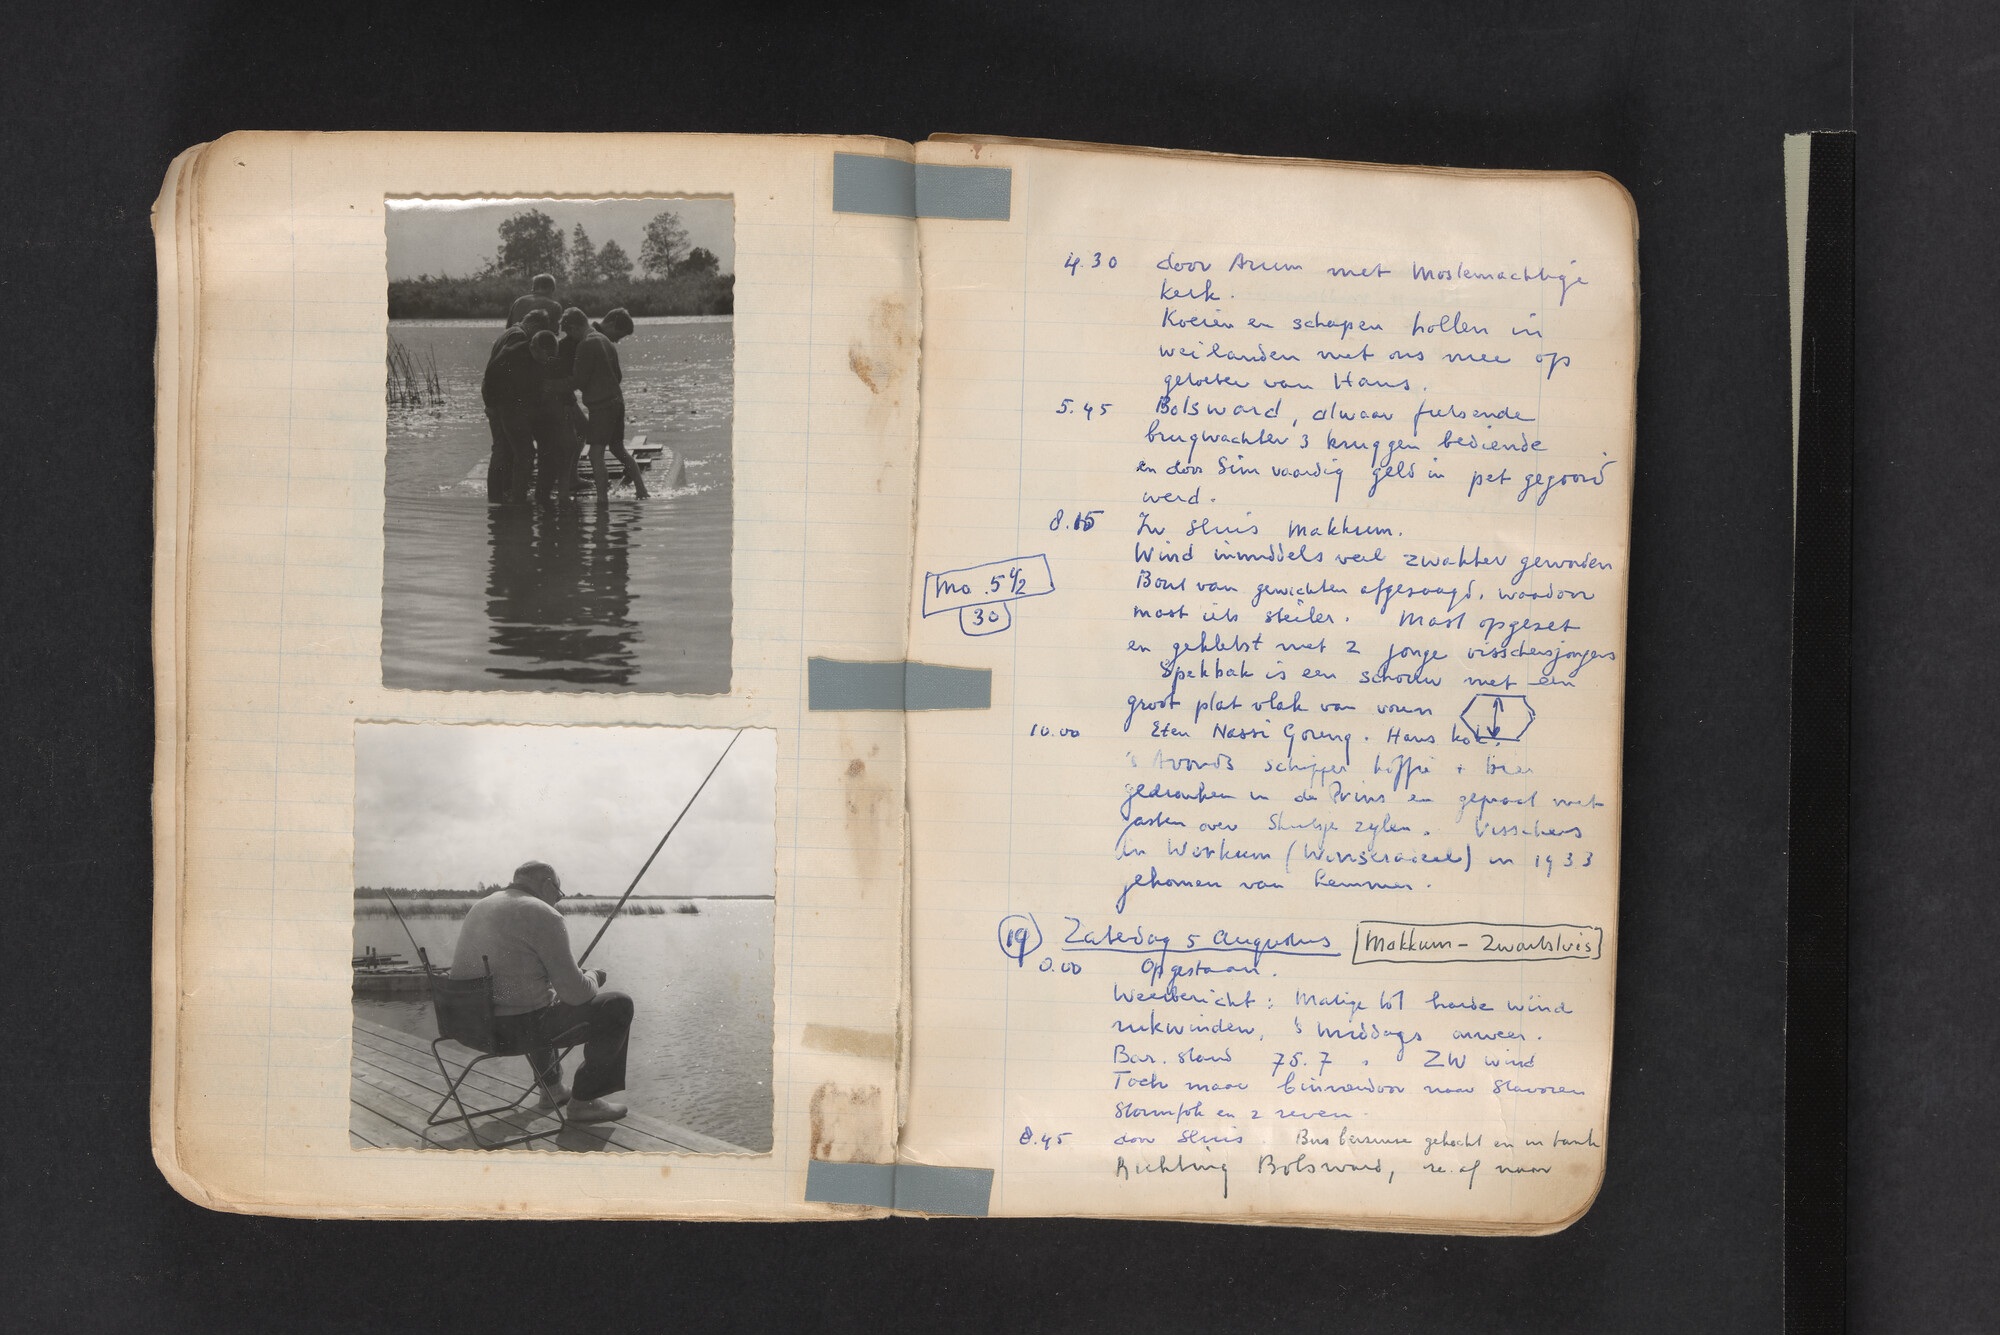 4.30 door Arum met Mostemachtige
kerk.
Koeien en schapen hollen in
weilanden met ons mee op
getoeter van Hans.
5.45 Bolsward, alwaar fietsende
brugwachter 3 bruggen bediende
en door Sim vaardig geld in pet gegooid
werd.
8.15 In sluis Makkum.
Wind inmiddels veel zwakker geworden
Bout van gewichten afgezaagd, waardoor
mast iets steiler. Mast opgezet
Mo. 5 1/2
30
en gekletst met 2 jonge visschersjongens
Spekbak is een schouw met een
groot plat vlak van voren
10.00 Eten Nassi Goreng. Hans kok.
's Avonds schipper koffie + bier
gedronken in de Prins en gepraat met
gasten over Skutsje zylen. Visschers
in Workum () in 1933
gekomen van Lemmer.
19 Zaterdag 5 Augustus Makkum - Zwartsluis
0.00 Opgestaan.
Weerbericht: Matige tot harde wind
rukwinden, 's middags onweer.
Bar. stand 75.7. ZW wind
Toch maar binnendoor naar Stavoren
Stormfok en 2 reven
8.45 door sluis. Bus benzine gekocht en in tank
Richting Bolsward, re. af naar